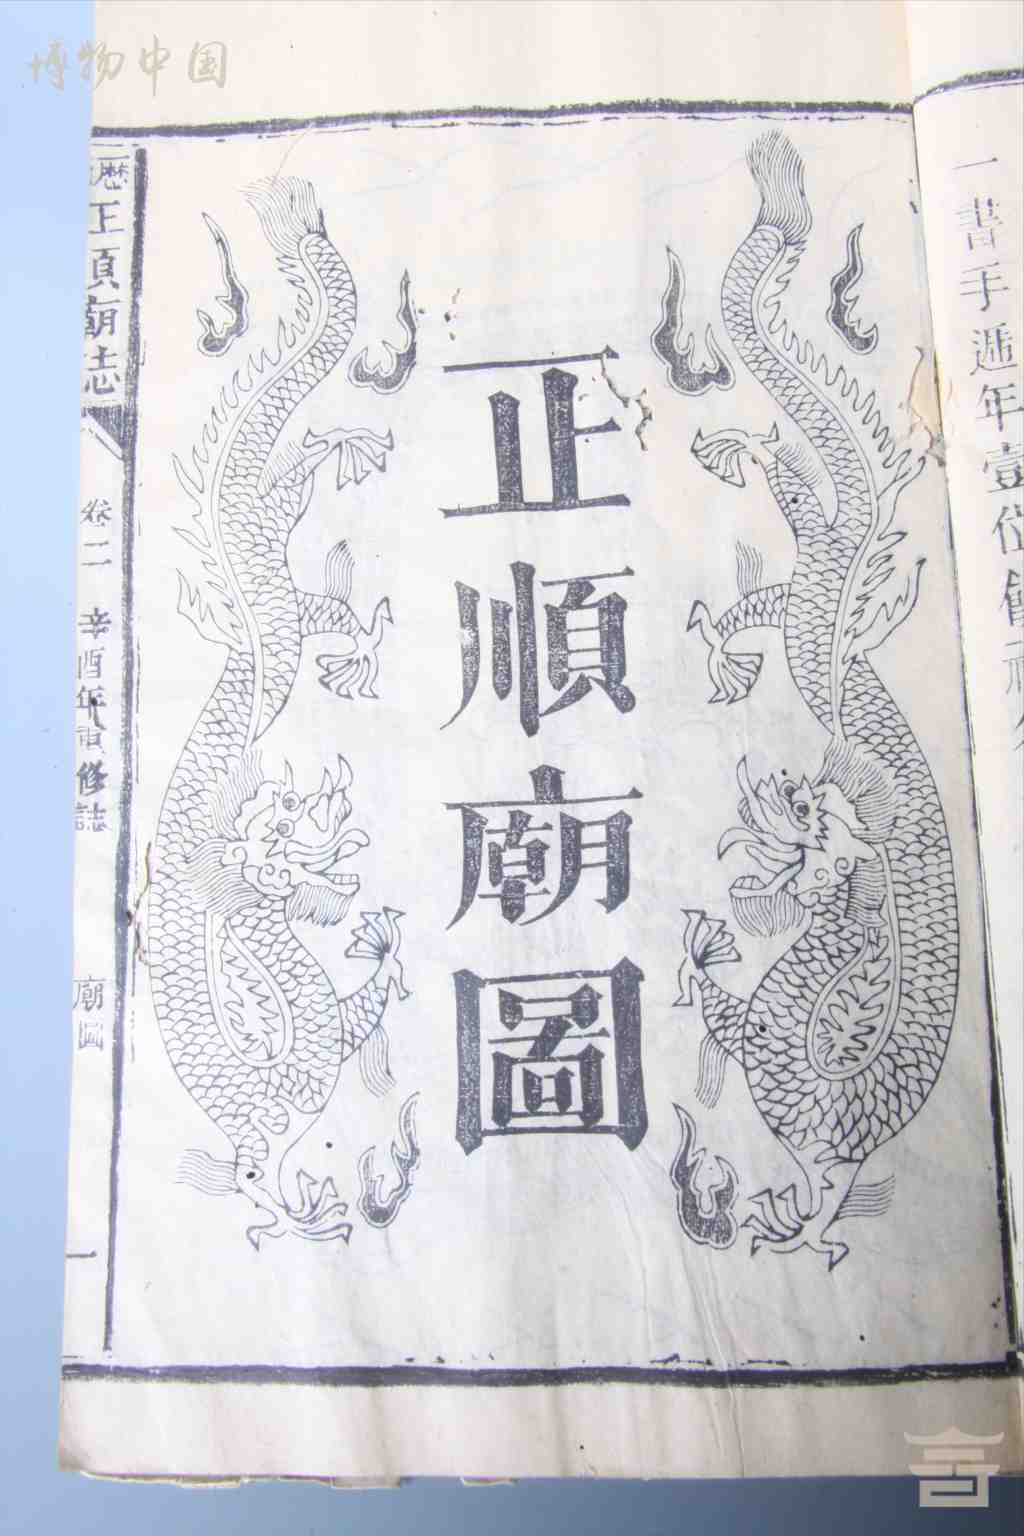 博物中国
一書手遞年壹位
正順廟圖
正順廟志
卷二
辛酉年重修誌
廟圖
一